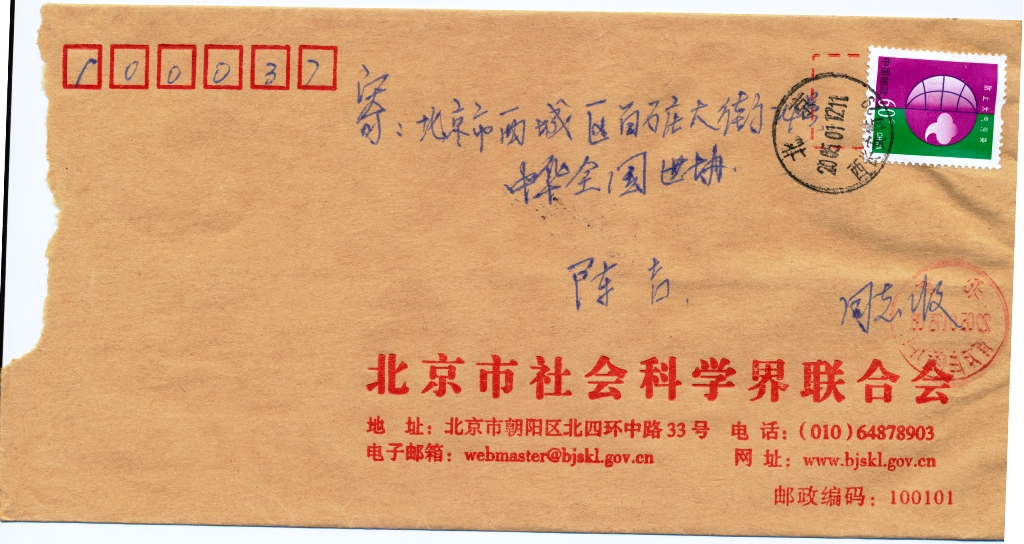 100037
寄：北京市西城区百万庄大街
中华全国世协
陈吉
同志收
北京
2005.01.12.11
中国邮政
60分
CHINA
防止大气污染
北京市社会科学界联合会
地 址：北京市朝阳区北四环中路 33 号 电 话：(010)64878903
电子邮箱：webmaster@bjskl.gov.cn 网 址：www.bjskl.gov.cn
邮政编码：100101